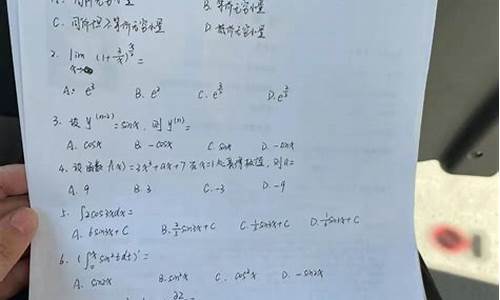 A. 同阶无穷小量 B. 等阶无穷小量
C. 同阶但不等阶无穷小量 D.
2. lim x→∞ (1+ 2/x) =
A. e³ B. e² C. D.
3. 设 y⁽ⁿ⁻²⁾ = sinx, 则 y⁽ⁿ⁾ =
A. cosx B. -cosx C. sinx D. -sinx
4. 设函数 f(x)=2x²+ax+7 在x=1处取得极值, 则a=
A. 9 B. 3 C. -3 D. -4
5. ∫2cos3xdx=
A. 6sin3x+C B. 2/3 sin3x+C C. 1/3 sin3x+C D. sin x+C
6. (∫₀ˣ sin²t dt)' =
A. sin2x B. sin²x C. cos²x D. -sin2x